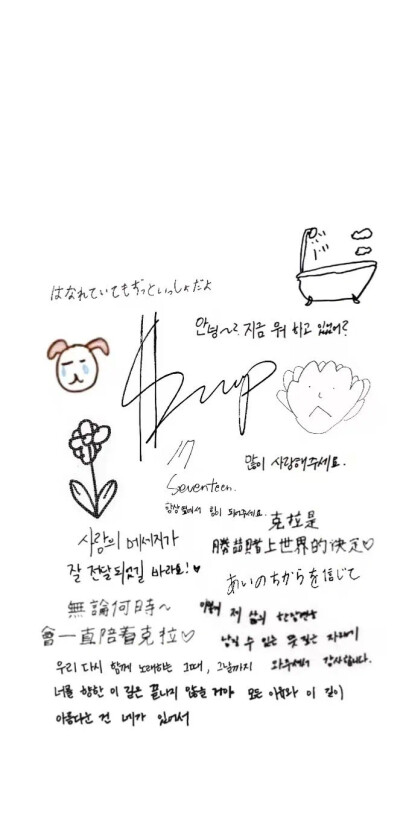 はなれていてもずっといっしょだよ
안녕~ 지금 뭐 하고 있었어?
많이 사랑해주세요.
Seventeen.
항상 옆에서 힘이 되어주세요.
克拉是
上世界的决定♡
사랑의 메세지가
잘 전달되었길 바라요!♥
あいのちからを信じて
無論何時~
會一直陪着克拉♡
제 삶의
남길 수 있는
우리 다시 함께 노래하는 그때, 그날까지
와주셔서 감사합니다.
너를 향한 이 길은 끝나지 않을 거야 모든 이유와 이 길이
아름다운 건 네가 있어서